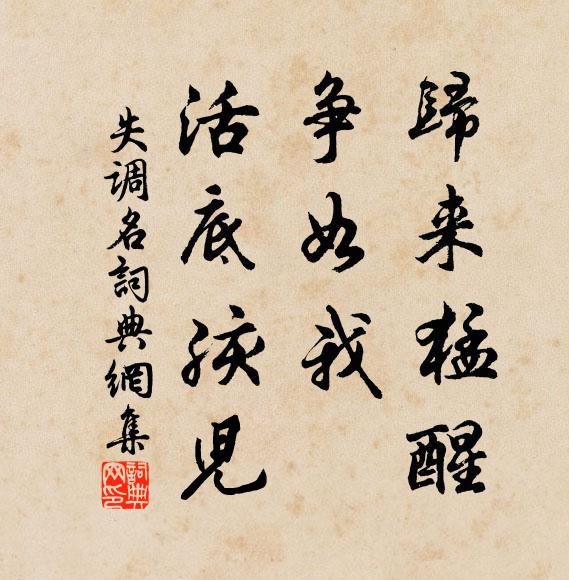 歸来猛醒
争如我
活底孩兒
失调名詞典網集
詞典网印